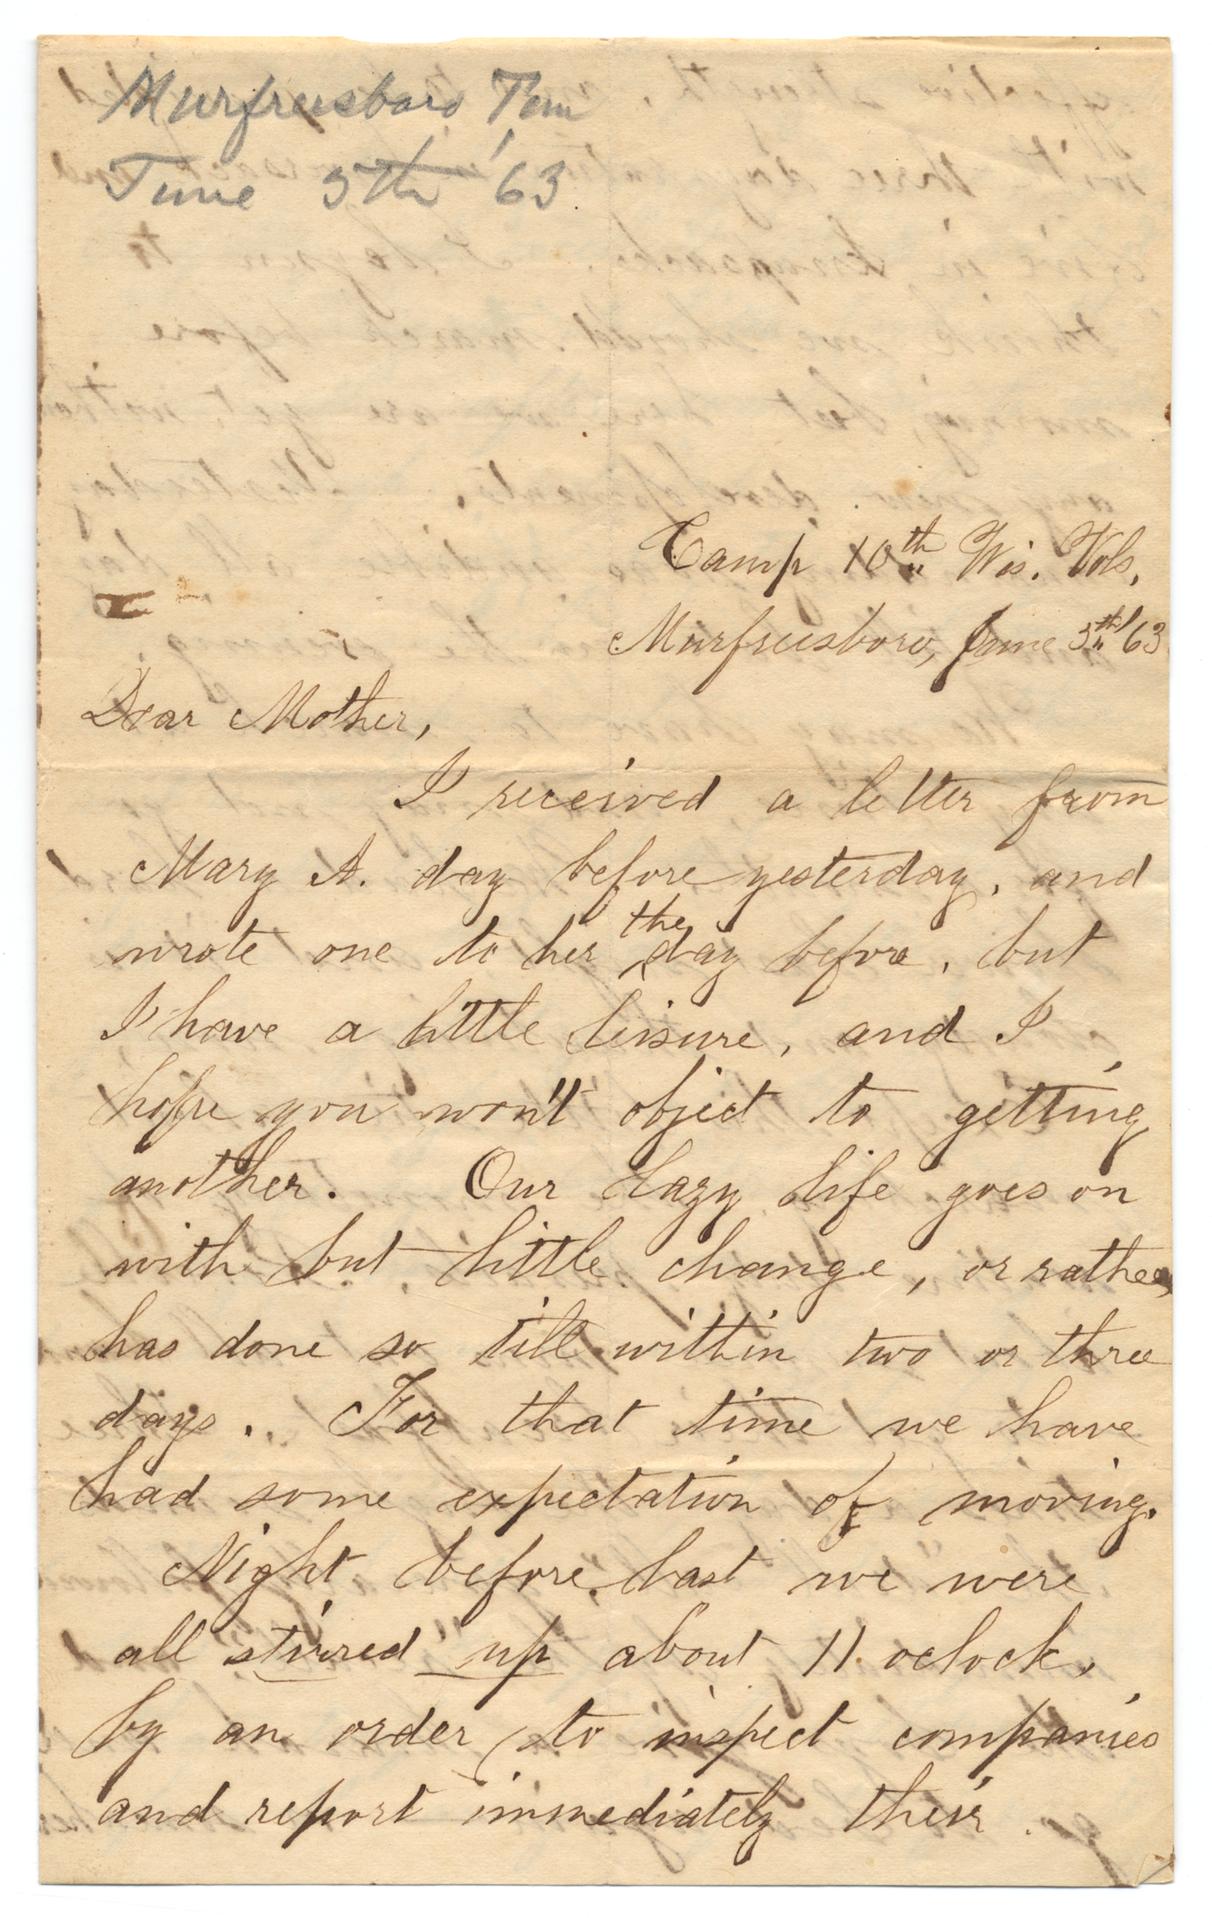 Murfreesboro Tenn
June 5th '63.
Camp 10th Wis. Vols,
Murfreesboro, June 5th/63
Dear Mother,
I received a letter from
Mary A. day before yesterday, and
wrote one to her the day before, but
I have a little leisure, and I
hope you won't object to getting
another. Our lazy life goes on
with but little change, or rather,
has done so till within two or three
days. For that time we have
had some expectation of moving.
Night before last we were
all stirred up about 11 oclock,
by an order to inspect companies
and report immediately their